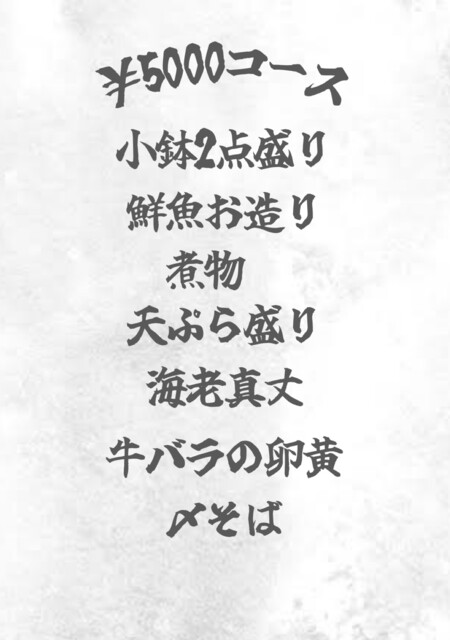 ¥5000コース
小鉢2点盛り
鮮魚お造り
煮物
天ぷら盛り
海老真丈
牛バラの卵黄
〆そば